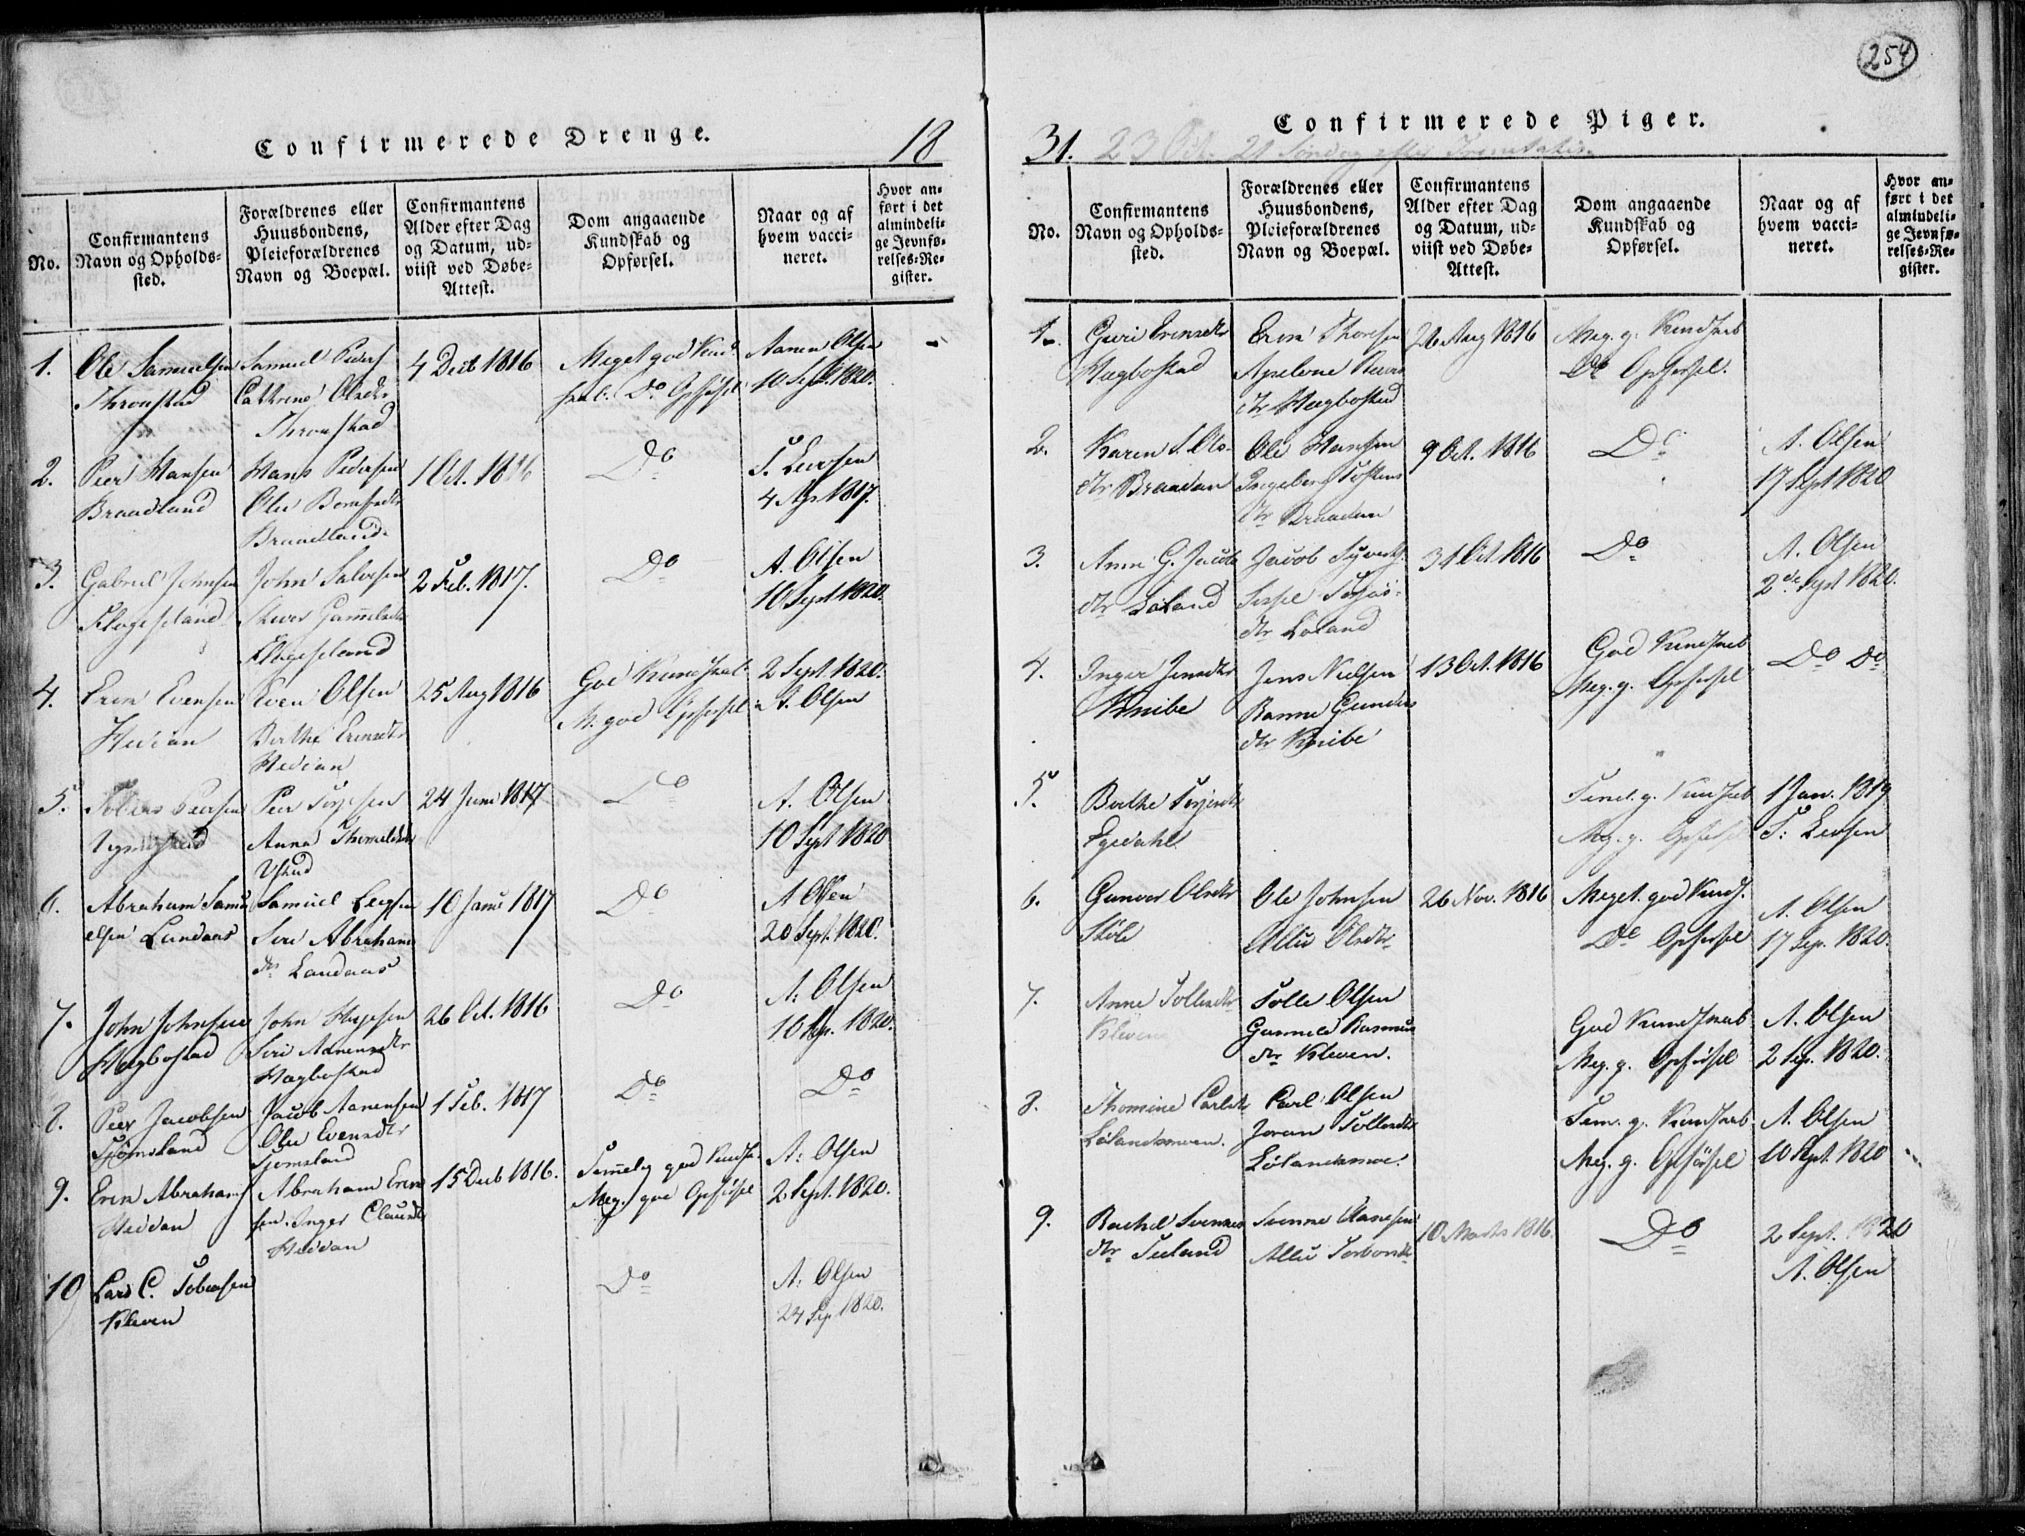 254
Confirmerede Drenge.
18
No.
Confirmantens
Navn og Opholds-
sted.
Forældrenes eller
Huusbondens,
Pleieforældrenes
Navn og Boepæl.
Confirmantens
Alder efter Dag
og Datum, ud-
viist ved Døbe-
Attest.
Dom angaaende
Kundskab og
Opførsel.
Naar og af
hvem vacci-
neret.
Hvor an-
ført i det
almindeli-
ge Jevnfø-
relses-Re-
gister.
1.
Ole Samuelsen
Thronstad
Samuel Peders
Cathrine Olsdtr
Thronstad
4 Decb 1816
Meget god Kund
skab. Do Opførsel
Aanen Olsen
10 Sept 1820.
2.
Peer Hansen
Braadland
Hans Pedersen
Braadland.
1 Oct. 1816
Do
T. Leersen
4 Apr 1817.
3.
Gabriel Johnsen
John Salvesen
2 Feb. 1817.
Do
A. Olsen
10 Sept 1820.
4.
Even Evensen
Heddan
Even Olsen
Berthe Erensdtr
Heddan
25 Aug 1816
God Kundskab
M. god Opførsel
2 Sept. 1820.
A. Olsen
5.
Tobias Peersen
Peer
Anna
24 Juni 1817
Do
A. Olsen
10 Sept 1820
6.
Abraham Samu
elsen Landaas
Samuel
Siri Abrahams
dtr Landaas
10 Janu 1817
Do
A Olsen
20 Sept. 1820.
7.
John Johnsen
Hægbostad
John
Siri Aanensdtr
Hægbostad
26 Oct. 1816
Do
A. Olsen
10 Sep. 1820.
8.
Peer Jacobsen
Tjomsland
Jacob Aanensen
Olu Evensdtr
Tjomsland
1 Feb. 1817
Do
Do
9.
Eren Abraham
Heddan
Abraham Eren
sen. Inger
Heddan
15 Decb 1816.
Temelig god Kundsk.
Meg. god Opførsel
A. Olsen
2 Sept. 1820.
10
Lars C. Tobiasen
Kleven
Do
A. Olsen
24 Sep 1820.
Confirmerede Piger.
31.
23 Oct. 21 Søndag efter Trinitatis
No.
Confirmantens
Navn og Opholds-
sted.
Forældrenes eller
Huusbondens,
Pleieforældrenes
Navn og Boepæl.
Confirmantens
Alder efter Dag
og Datum, ud-
viist ved Døbe-
Attest.
Dom angaaende
Kundskab og
Opførsel.
Naar og af
hvem vacci-
neret.
Hvor an-
ført i det
almindeli-
ge Jevnfø-
relses-Re-
gister.
1.
Guri Erensdtr
Hægbostad
Eren Thoresen
Apelone
dtr Hægbostad
26 Aug 1816
Meg. g. Kundskab
Do Opførsel.
2.
Karen S. Ols
dtr Braadan
Ole Hansen
Ingeborg Tostens
dtr Braadan
9 Oct. 1816
Do
A. Olsen
17 Sept 1820
3.
Anne G. Jacobs
dtr Løland
Jacob
dtr Løland
31 Oct 1816
Do
A. Olsen
2de Sept 1820.
4.
Inger Jensdtr
Knibe
Jens Nielsen
Ranne Gunders
dtr Knibe
13 Oct. 1816
God Kundskab
Meg. g. Opførsel
Do Do
5.
Berthe Terjesdtr
Egsdahl
Temel. g. Kundskab
Meg. g. Opførsel
1 Jan. 1819
T: Leersen
6.
Gunvor Olsdtr
Ole Johnsen
Allu Olsdtr
26 Nov. 1816
Meget god Kundsk.
Do Opførsel
A. Olsen
17 Sep. 1820.
7.
Anne Tollevsdtr
Kleven
Tolle Olsen
Gunnild Rasmus
dtr Kleven.
God Kundskab
Meg. g. Opførsel
A. Olsen
2 Sep. 1820.
8.
Thomine Carlsdtr
Carl Olsen
Joran Tollevsdtr
Tem. g. Kundskab
Meg. g. Opførsel
A. Olsen
10 Sept. 1820
9.
Rachel Svennes
dtr
Svenne
Allu
10 Marts 1816.
Do
2 Sept. 1820
A. Olsen